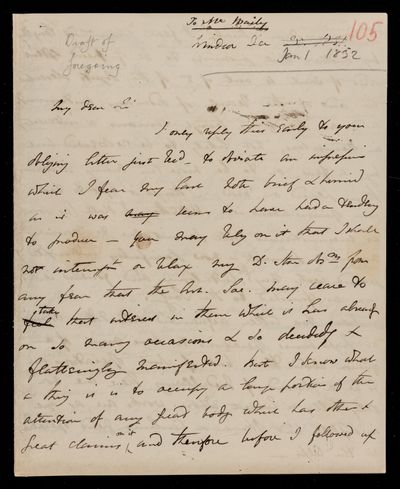 To Mr Baily
105
Draft of
foregoing
Jan 1 1852
My dear Sir
I only reply thus early to your
obliging letter just recd. to obviate an impression
which I fear my last note brief & hurried
as it was seems to have had a tendency
to produce — you may rely on it that I shall
not interrupt or relax my D. Star Obns from
any fear that the Ast. Soc. may cease to
take that interest in them which it has already
on so many occasions & so decidedly &
flatteringly manifested. But I know what
a thing it is to occupy a large portion of the
attention of any great body which has other &
great claims on it, and therefore before I followed up